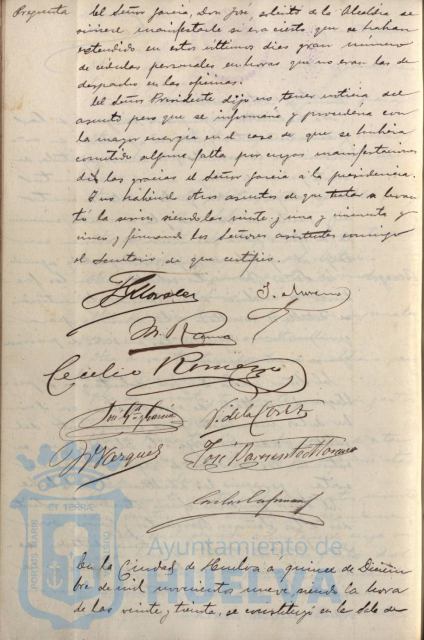 Pregunta
El Señor García, Don José, solicitó de la Alcaldía se
sirviere manifestarle si era cierto que se habían
extendido en estos ultimos dias gran número
de cédulas personales en horas que no eran las de
despacho en las oficinas.
El Señor Presidente dijo no tener noticia del
asunto pero que se informaria y procedería con
la mayor energía en el caso de que se hubiera
cometido alguna falta por cuyas manifestaciones
dió las gracias el Señor García á la presidencia.
Y no habiendo otros asuntos de que tratar se levan-
tó la sesion siendo las veinte y una y cincuenta y
cinco, firmando los Señores asistentes conmigo
el Secretario de que certifico.
J. Moreno
Cecilio Romero
José Mª García
V. de la Corte
M Vazquez
José Parasento Moreno
PORTUS MARIS
ET TERRÆ
Ayuntamiento de
HUELVA
En la Ciudad de Huelva a quince de Diciem-
bre de mil novecientos nueve, siendo la hora
de las veinte y treinta, se constituyó en la Sala de